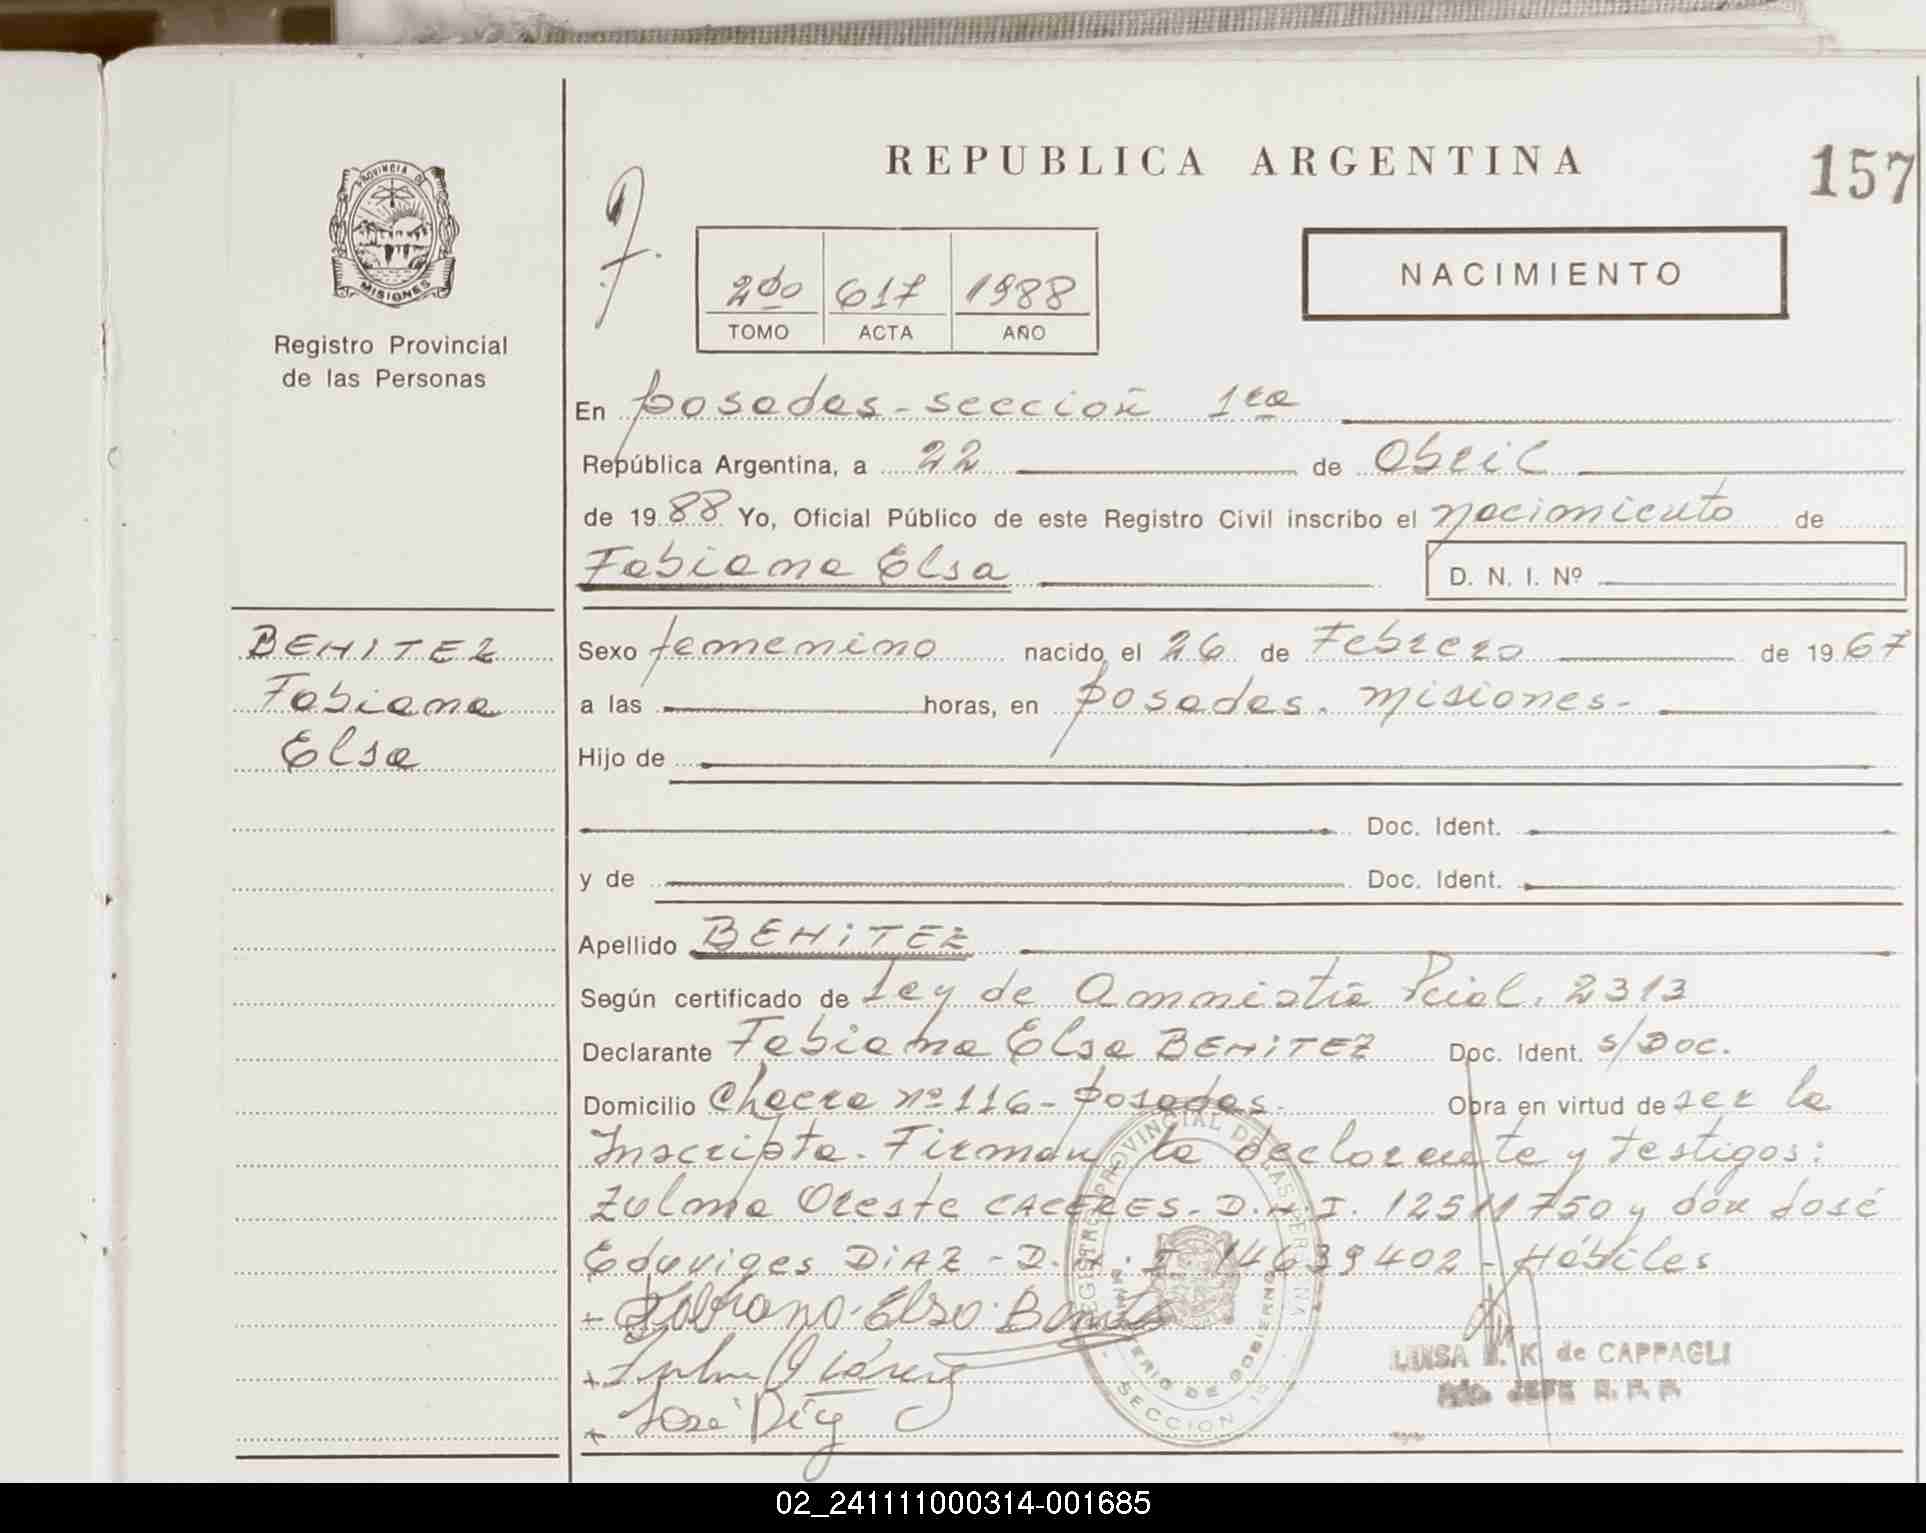 REPUBLICA ARGENTINA
157
PROVINCIA DE
MISIONES
Registro Provincial
de las Personas
F.
2do 617 1988
TOMO ACTA AÑO
NACIMIENTO
En posadas - sección 1ra
República Argentina, a 22 de Abril
de 1988 Yo, Oficial Público de este Registro Civil inscribo el nacimiento de
Fabiana Elsa
D. N. I. Nº
BENITEZ
Fabiana
Elsa
Sexo femenino nacido el 26 de Febrero de 1967
a las horas, en posadas. misiones.-
Hijo de
Doc. Ident.
y de Doc. Ident.
Apellido BENITEZ
Según certificado de Ley de Amnistía Pcial. 2313
Declarante Fabiana Elsa BENITEZ Doc. Ident. s/Doc.
Domicilio Chacra nº 116 - posadas. Obra en virtud de ser la
Inscripta. Firman la declarante y testigos:
Zulma Oreste CACERES - D.N.I. 12511750 y don José
Eduviges DIAZ - D.N.I. 14639402 - Hábiles
+ Fabiana Elsa Benitez
+
+ José Díaz
REGISTRO PROVINCIAL DE LAS PERSONAS
MINISTERIO DE GOBIERNO
SECCION 1ª
LUISA K. de CAPPAGLI
JEFE R. P. P.
02_241111000314-001685